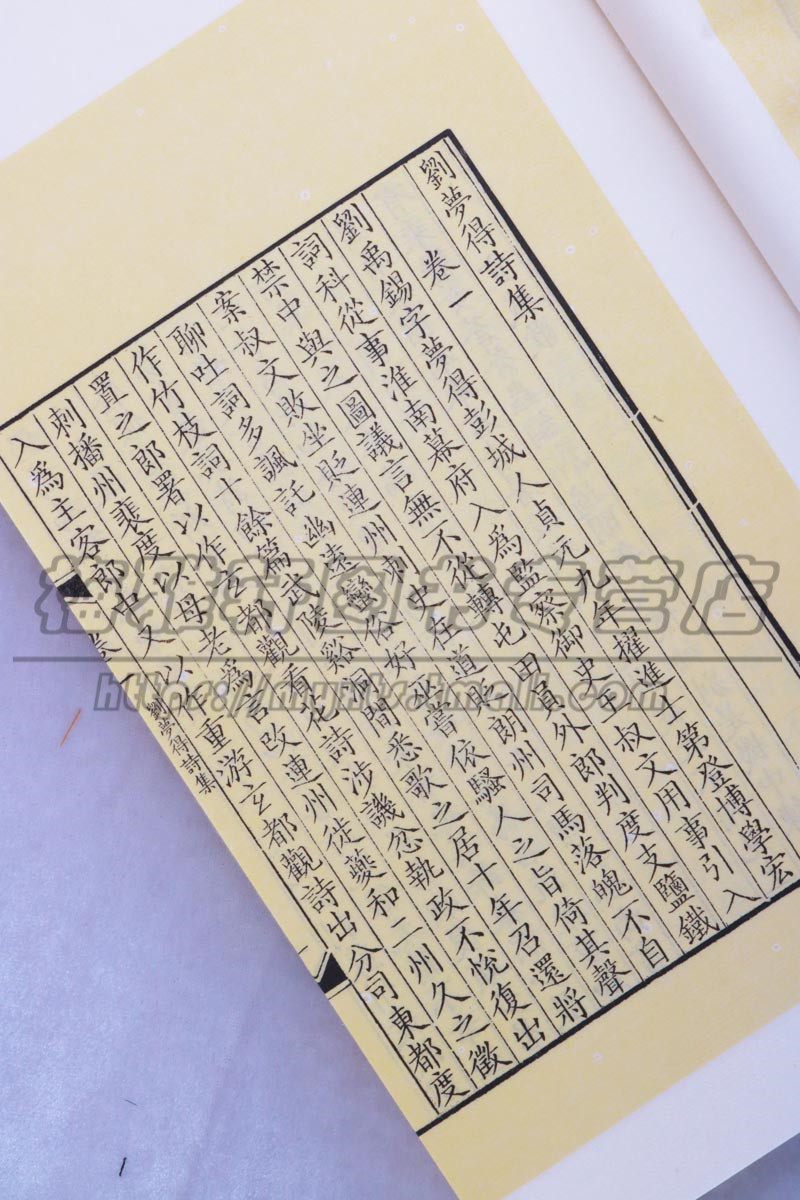 劉夢得詩集
卷一
劉禹錫字夢得彭城人貞元九年擢進士第登博學宏
詞科從事淮南幕府入為監察御史王叔文用事引入
禁中與之圖議言無不從轉屯田員外郎判度支鹽鐵
案叔文敗坐貶連州刺史在道貶朗州司馬落魄不自
聊吐詞多諷託幽遠蠻俗好巫嘗依騷人之旨倚其聲
作竹枝詞十餘篇武陵谿洞間悉歌之居十年召還將
置之郎署以作玄都觀看花詩涉譏忿執政不悅復出
刺播州裴度以母老為言改連州徙夔和二州久之徵
入爲主客郎中又以作重游玄都觀詩出分司東都度
劉夢得詩集
轩图书专营店